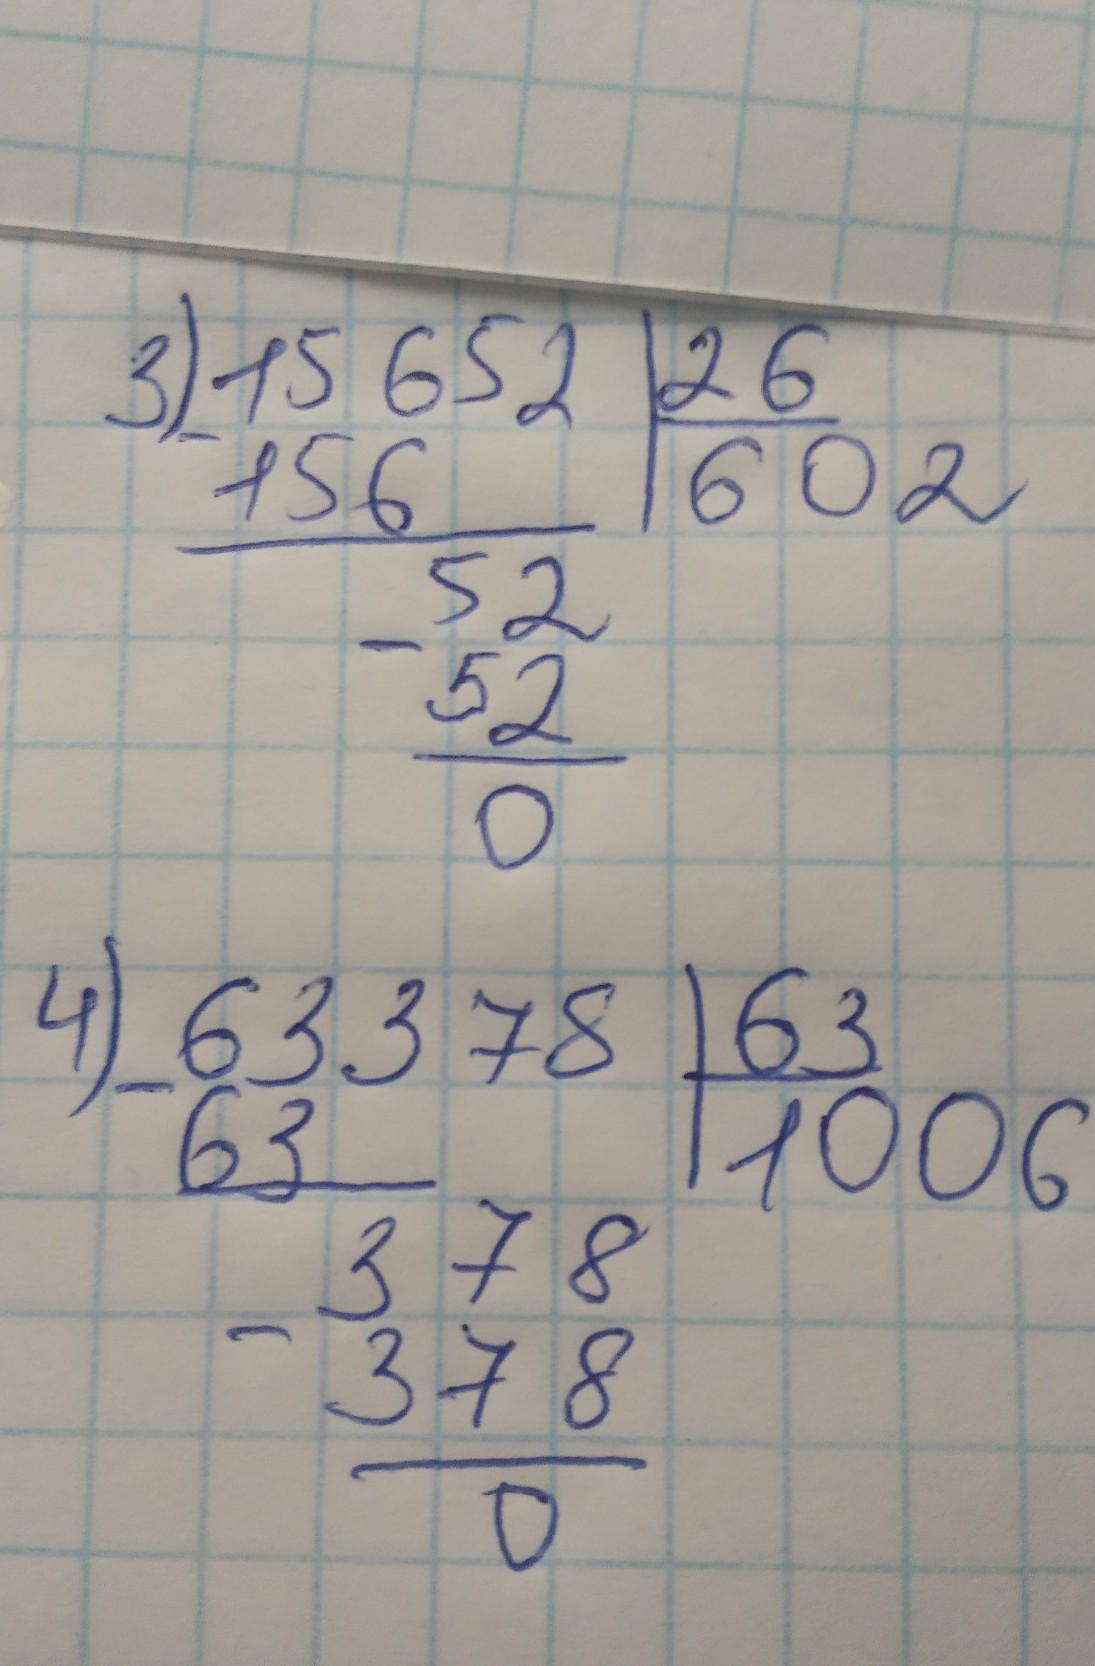 3) 15652 | 26
- 156 | 602
52
- 52
0
4) 63378 | 63
- 63 | 1006
378
- 378
0